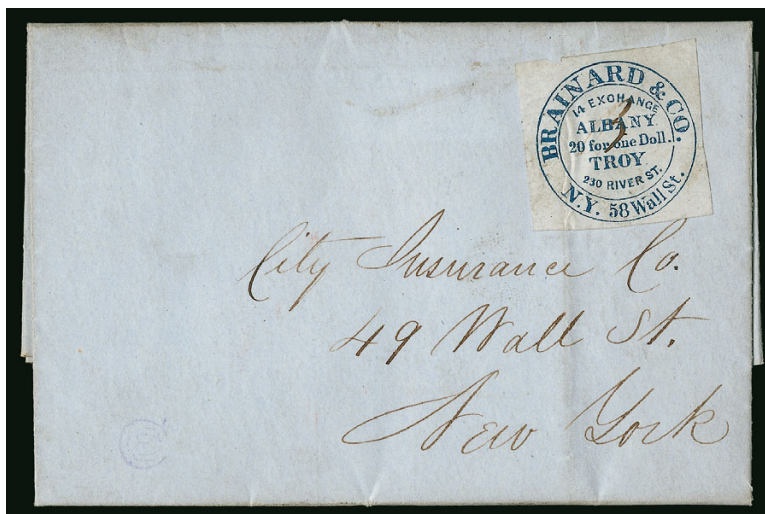 BRAINARD & CO.
14 EXCHANGE
ALBANY
3
20 for one Doll.
TROY
230 RIVER ST.
N.Y. 58 Wall St.
City Insurance Co.
49 Wall St.
New York